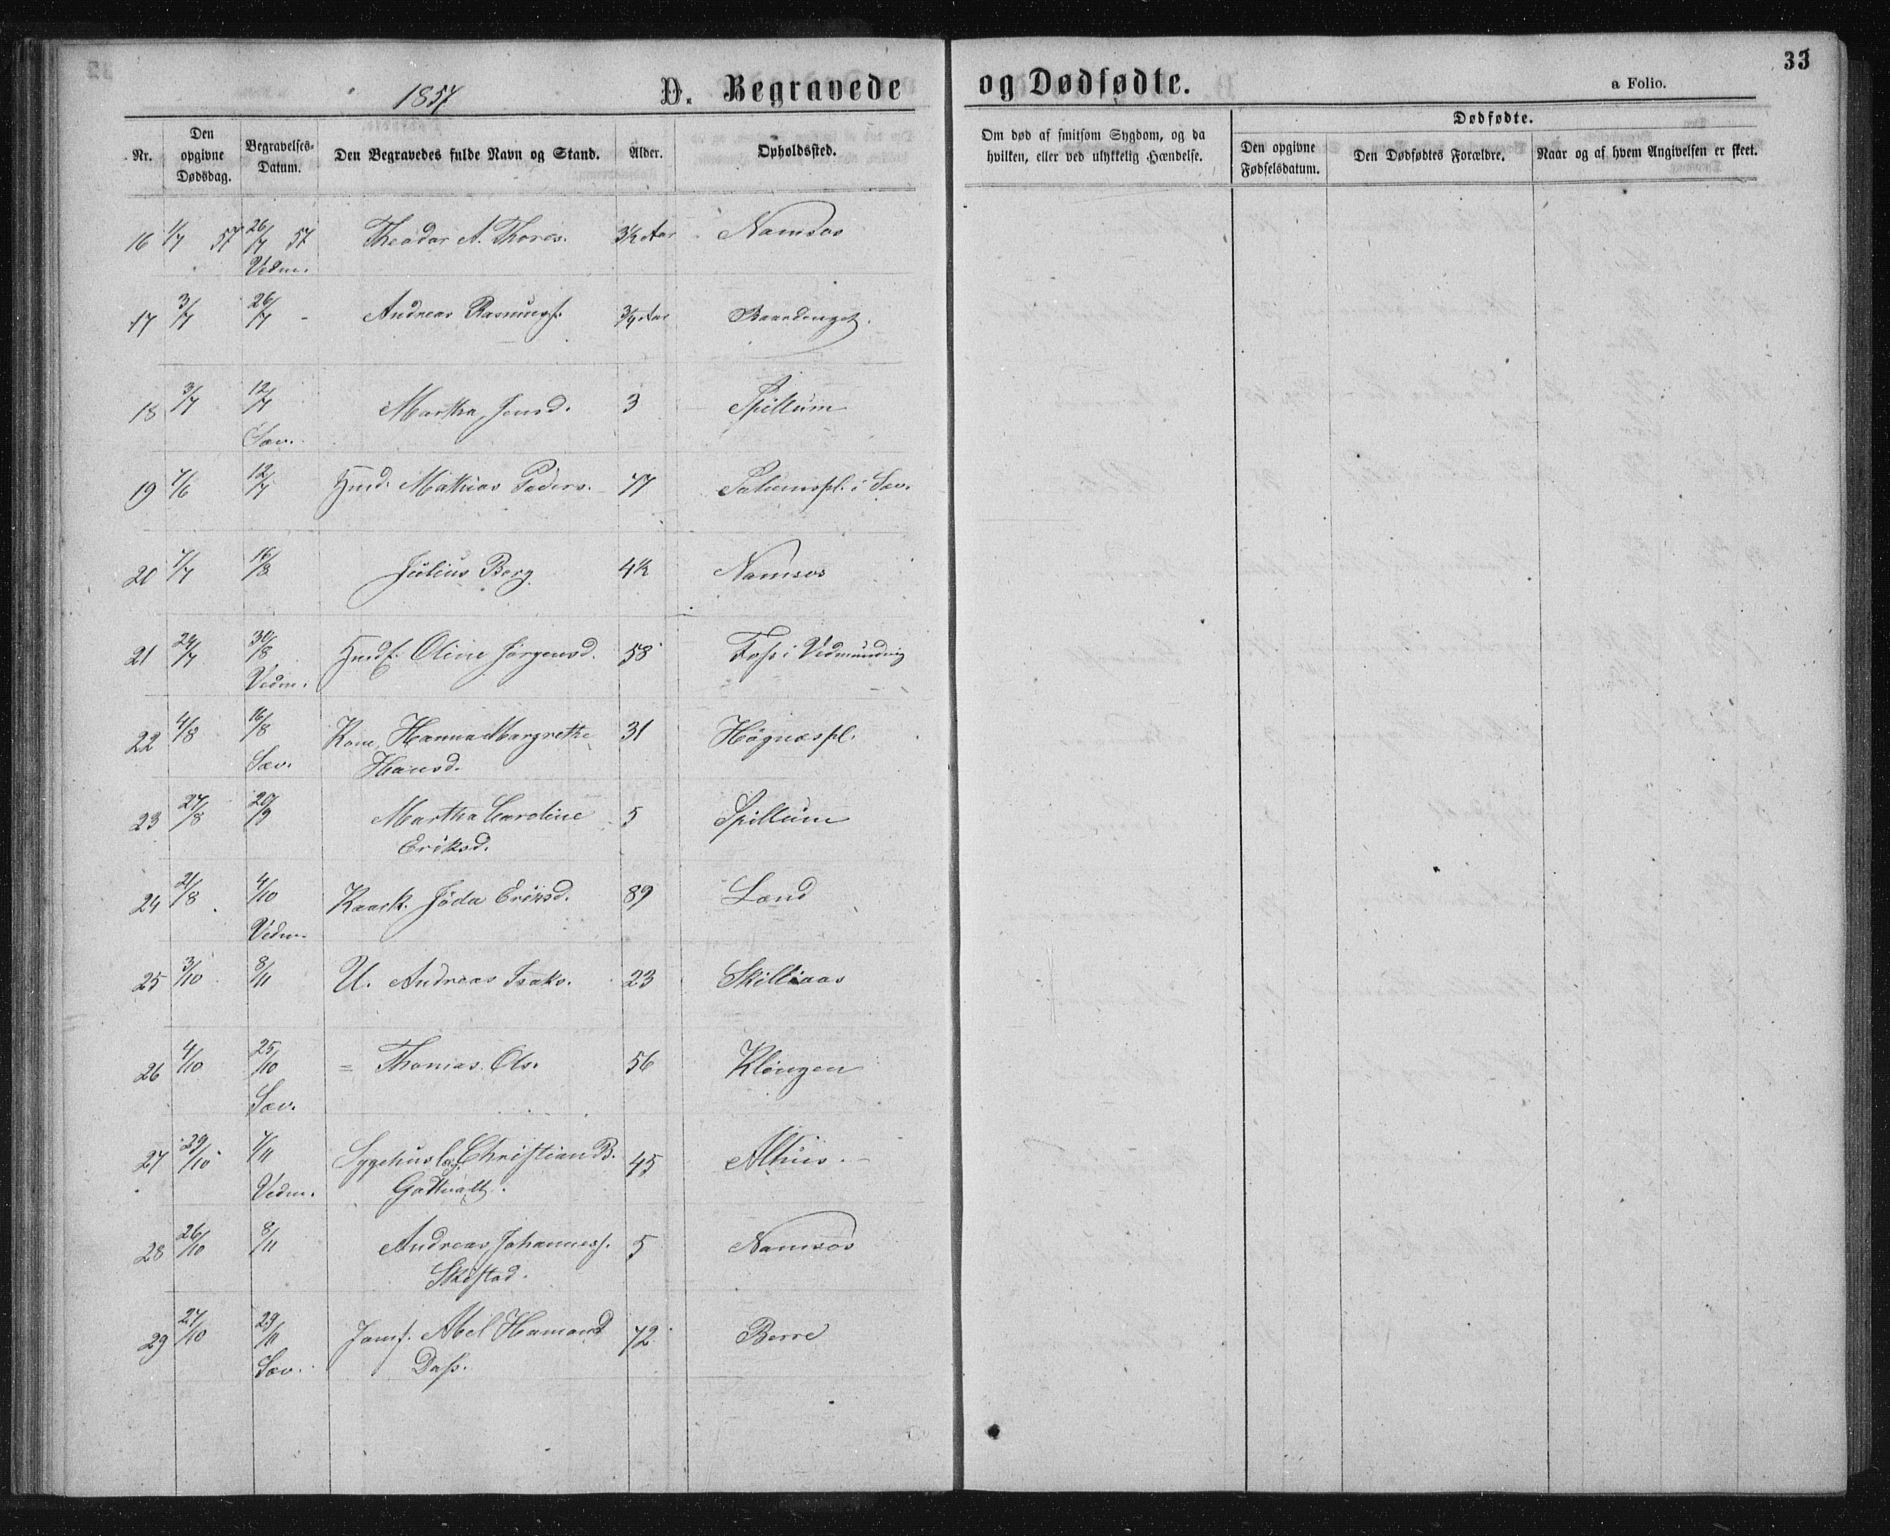 33
1857
D. Begravede og Dødfødte.
a Folio.
Nr.
Den opgivne Dødsdag.
Begravelses-Datum.
Den Begravedes fulde Navn og Stand.
Alder.
Opholdssted.
Om død af smitsom Sygdom, og da hvilken, eller ved ulykkelig Hændelse.
Dødfødte.
Den opgivne Fødselsdatum.
Den Dødfødtes Forældre.
Naar og af hvem Angivelsen er skeet.
16 1/7 57 26/7 57 Theodor A. Thores. 3½ Aar Namsos
Vedm.
17 3/7 26/7 - Andreas Rasmuss. 3/4 Aar
18 3/7 12/7 Martha Jensd. 3 Spillum
Sæv.
19 7/6 12/7 Hmd. Mathias Peders. 77 i Sæv.
20 7/7 16/8 Julius Berg 4½ Namsos
21 24/7 30/8 Oline Jørgensd. 58 Foss i Vedmundvig
Vedm.
22 4/8 16/8 Kone Hanna Margrethe 31 Høgnæspl.
Sæv. Hansd.
23 27/8 20/9 Martha Caroline 5 Spillum
Eriksd.
24 21/8 4/10 Kaark. Jøda Eriksd. 89 Lænd
Vedm.
25 3/10 8/11 U. Andreas Isaks. 23 Skilliaas
26 4/10 25/10 = Thomas Ols. 56 Klongen
Sæv.
27 29/10 1/11 Christian B. 45
Vedm. Gottwalt.
28 26/10 8/11 Andreas Johanness. 5 Namsos
29 27/10 29/11 Jomf. Abel Hamond 72 Berre
Sæv. Dass.